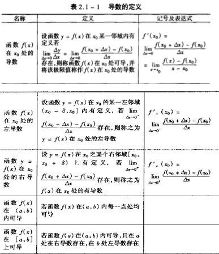 表 2.1-1 导数的定义
名称 定义 记号及表达式
函数 f(x)
在 x₀ 处的
导数
设函数 y = f(x) 在 x₀ 某一邻域内有
定义若
lim Δx→0 Δy/Δx = lim Δx→0 [f(x₀ + Δx) - f(x₀)]/Δx
存在,则称函数 f(x) 在 x₀ 处可导,并
将该极限值称作 f(x) 在 x₀ 处的导数
f'(x₀) =
lim Δx→0 [f(x₀ + Δx) - f(x₀)]/Δx
= lim x→x₀ [f(x) - f(x₀)]/(x - x₀)
函数 f(x)
在 x₀ 处的
左导数
设函数 y = f(x) 在 x₀ 的某一左邻域
(x₀ - δ, x₀] 内有定义,若 lim
[f(x₀ + Δx) - f(x₀)]/Δx 存在,则称之为
f(x) 在 x₀ 处的左导数
f'₋(x₀) =
lim [f(x₀ + Δx) - f(x₀)]/Δx
函数 y =
f(x) 在 x₀
处的右导
数
设 y = f(x) 在 x₀ 之某个右邻域 [x₀,
x₀ + δ) 上有定义,若 lim
[f(x₀ + Δx) - f(x₀)]/Δx 存在,则称之为
f(x) 在 x₀ 处的右导数
f'₊(x₀) =
lim [f(x₀ + Δx) - f(x₀)]/Δx
函数 f(x)
在 (a,b)
内可导
若函数 f(x) 在 (a,b) 内每一点均
可导
函数 f(x)
在 [a,b]
上可导
若函数 f(x) 在 (a,b) 内可导,且在 a
处右导数存在,在 b 处左导数存在